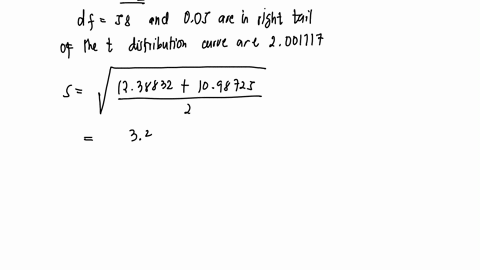 df = 58 and 0.05 are in right tail
of the t distribution curve are 2.001717
S = √((12.38832 + 10.98725) / 2)
= 3.2